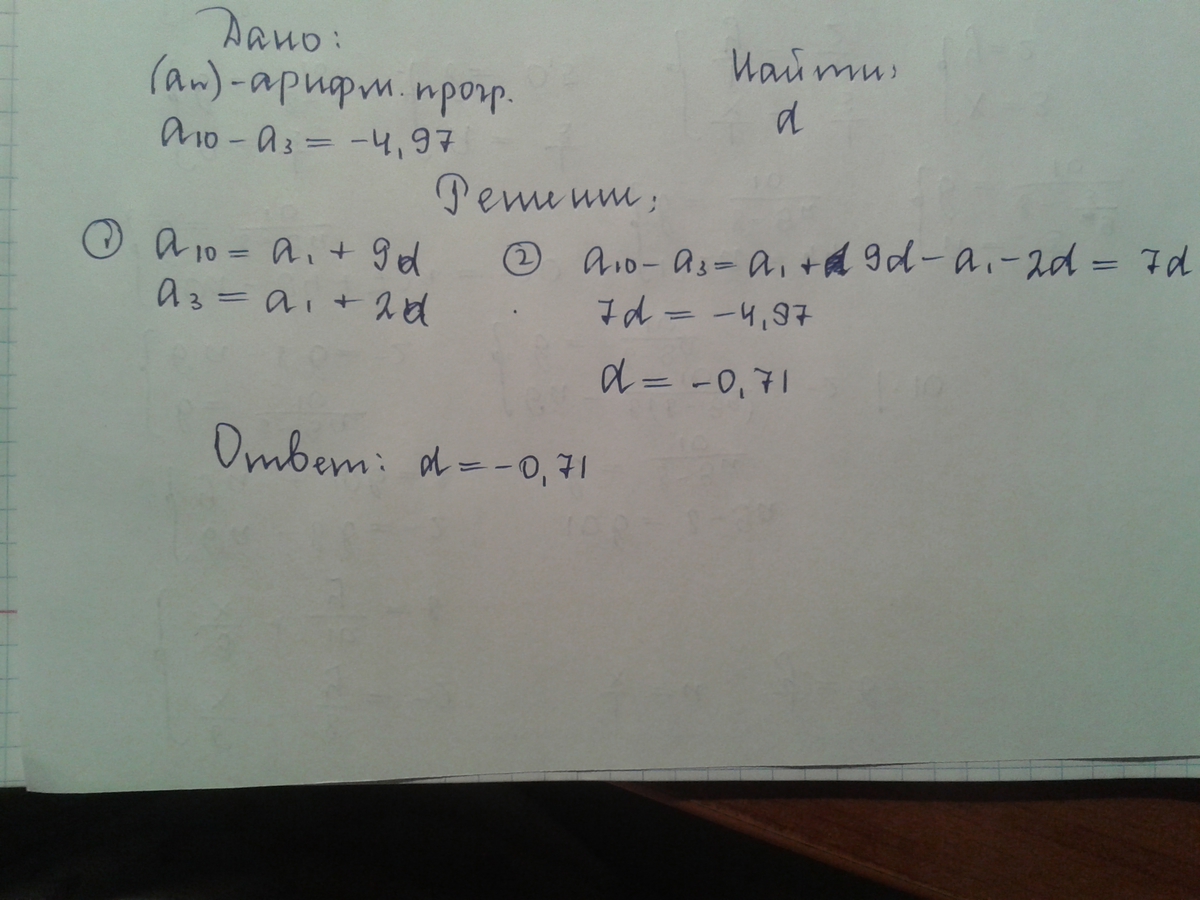 Дано:
(an) - арифм. прогр.
a10 - a3 = -4,97
Найти:
d
Решение:
① a10 = a1 + 9d
a3 = a1 + 2d
② a10 - a3 = a1 + 9d - a1 - 2d = 7d
7d = -4,97
d = -0,71
Ответ: d = -0,71